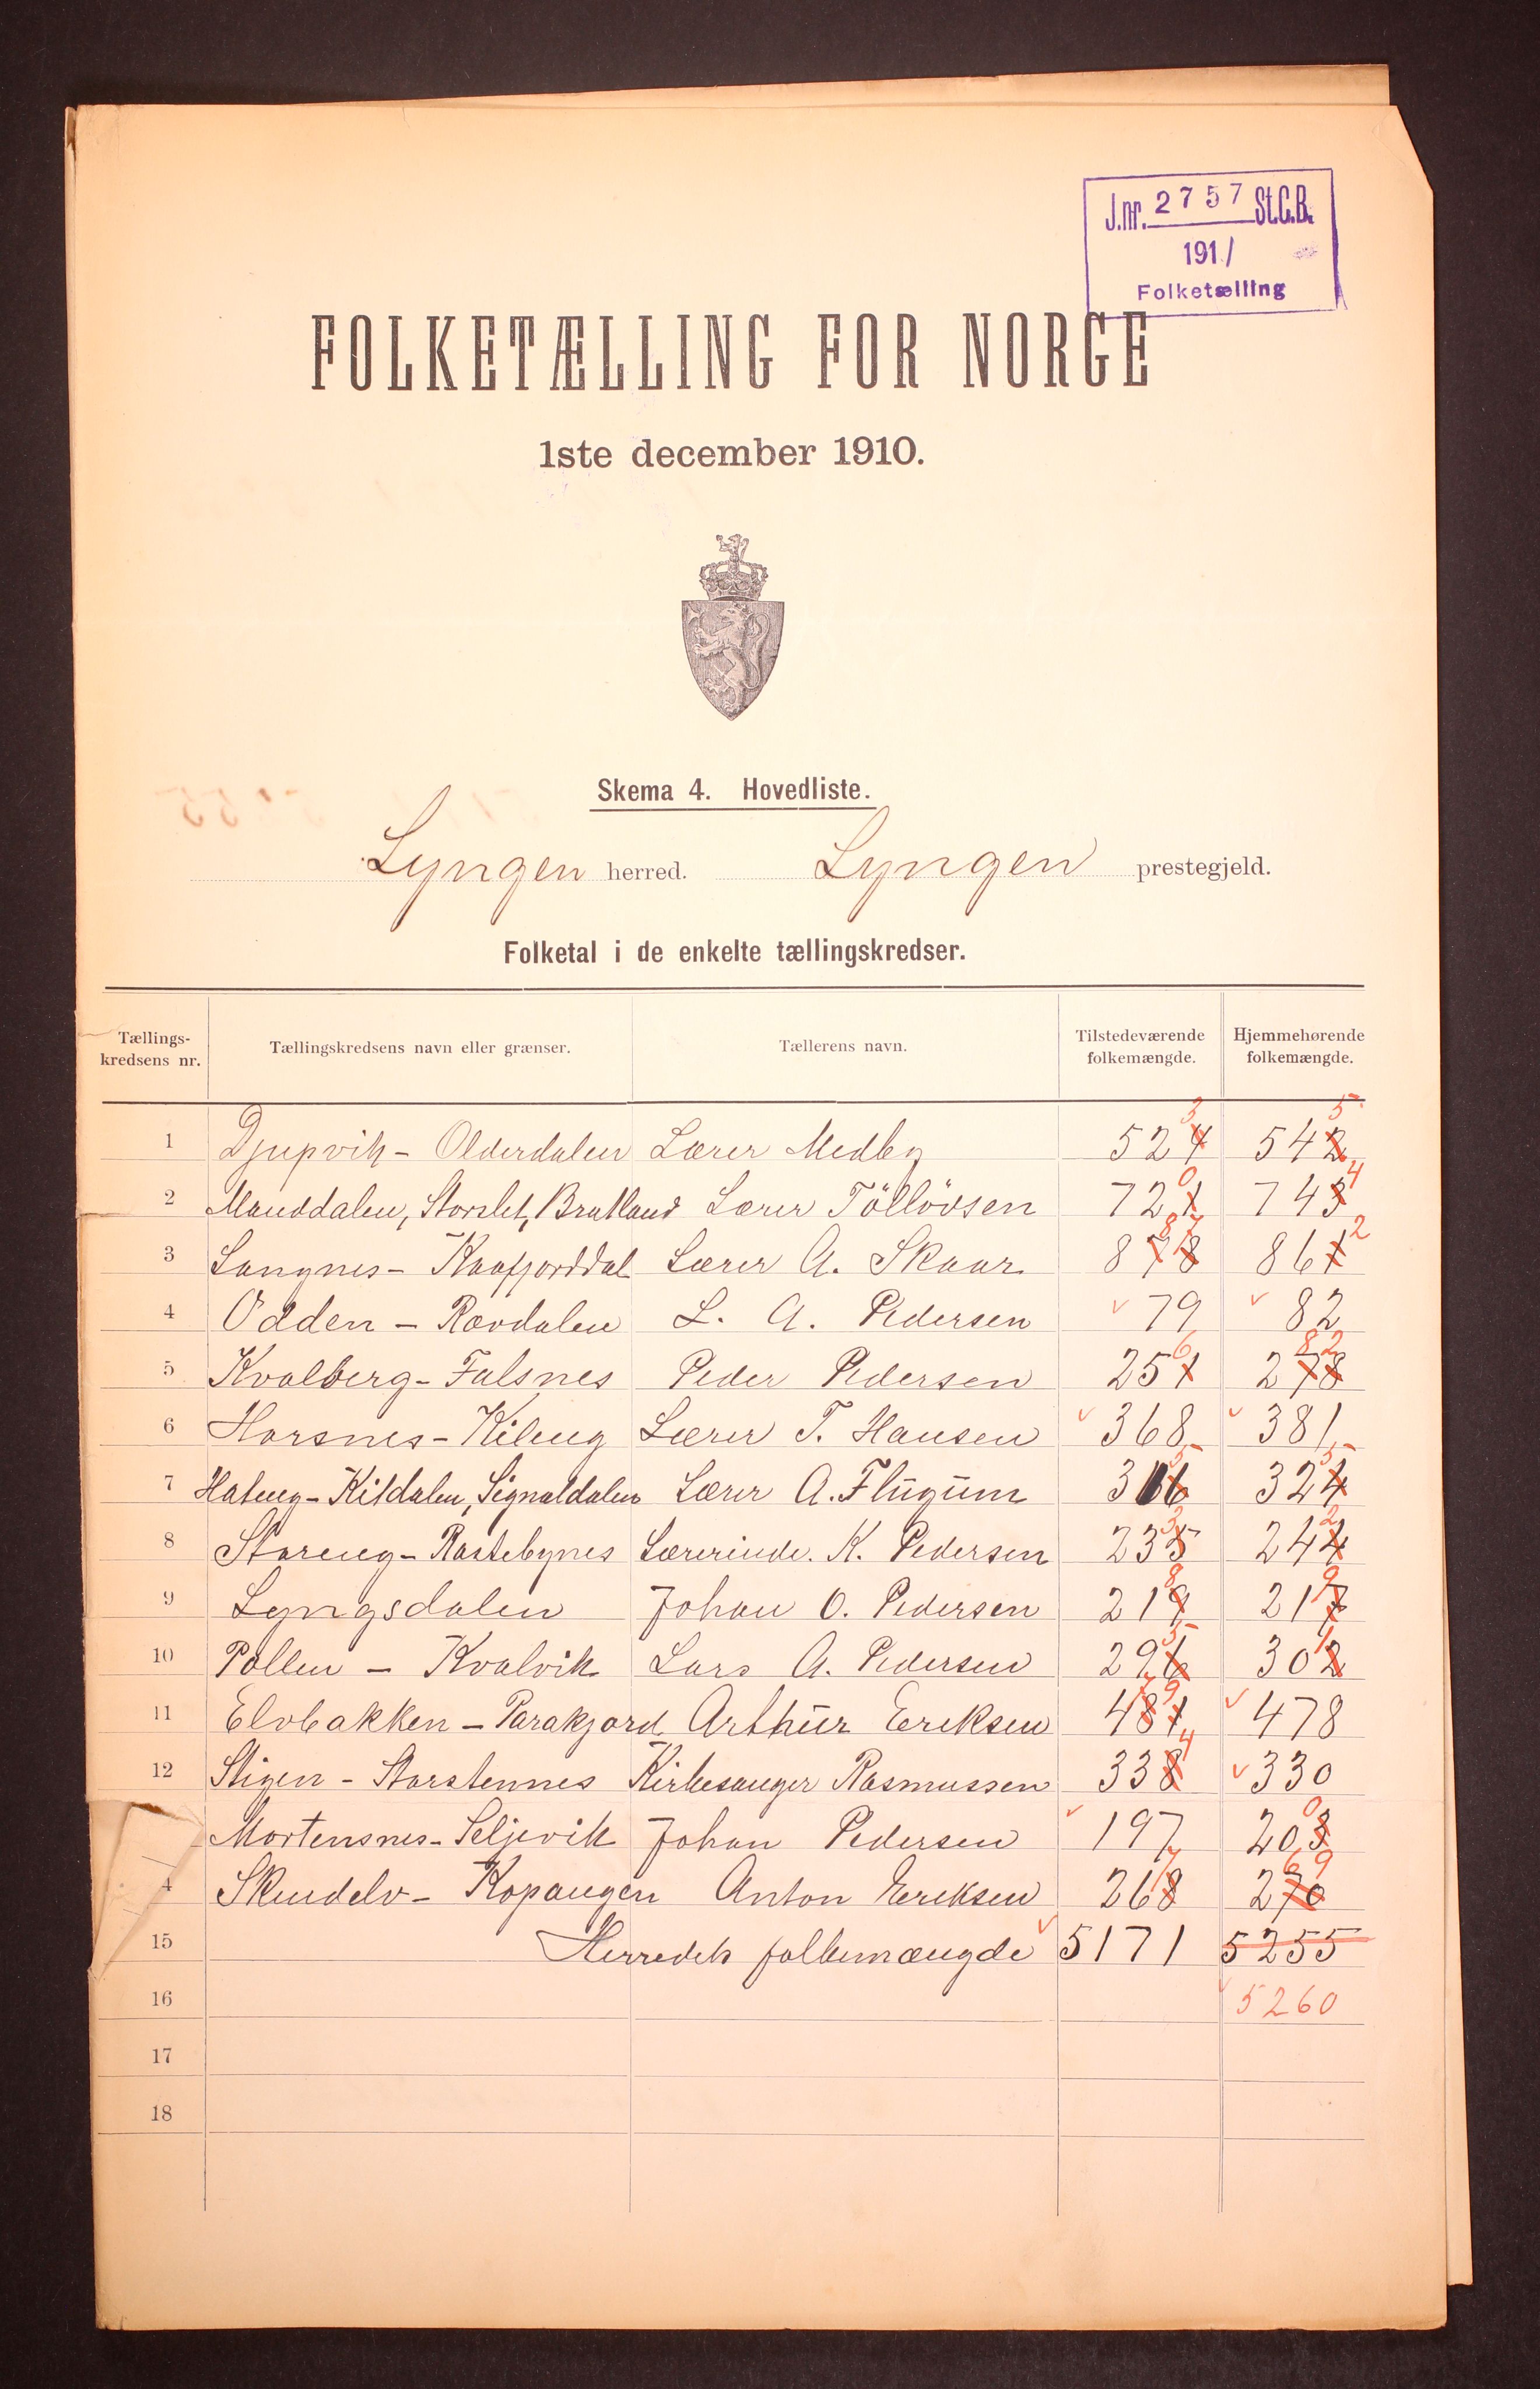 J.nr. 2757 St.C.B.
1911
Folketælling
FOLKETÆLLING FOR NORGE
1ste december 1910.
Skema 4. Hovedliste.
Lyngen herred. Lyngen prestegjeld.
Folketal i de enkelte tællingskredser.
Tællingskredsens nr. Tællingskredsens navn eller grænser. Tællerens navn. Tilstedeværende folkemængde. Hjemmehørende folkemængde.
1 Djupvik - Olderdalen Lærer Medby 524 3 542 5
2 Manddalen, Storslet, Bratland Lærer Töllövsen 721 0 743 4
3 Langnes - Kaafjorddal Lærer A. Skaar 878 87 861 2
4 Odden - Rovdalen L. A. Pedersen 79 82
5 Kvalberg - Falsnes Peder Pedersen 251 6 278 82
6 Horsnes - Kileng Lærer T. Hansen 368 381
7 Hateng - Kitdalen, Signaldalen Lærer A. Flugum 316 5 324 5
8 Storeng - Rastebynes Lærerinde. K. Pedersen 235 3 244 2
9 Lyngsdalen Johan O. Pedersen 219 8 217 9
10 Pollen - Kvalvik Lars A. Pedersen 296 5 302 1
11 Elvbakken - Parakjord Arthur Eriksen 481 79 478
12 Stigen - Storstennes Kirkesanger Rasmussen 338 4 330
Mortensnes - Seljevik Johan Pedersen 197 203 0
4 Skudelv - Kopangen Anton Eriksen 268 7 270 69
15 Herredets folkemængde 5171 5255
16 5260
17
18